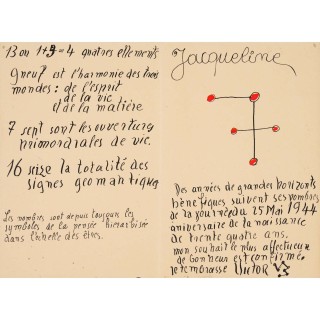 13 ou 1+3=4 quatres ellements
9 neuf est l'harmonie des trois
mondes: de l'esprit
de la vie
de la matière
7 sept sont les ouvertures
primordiales de vie.
16 seize la totalité des
signes geomantiques
Les nombres sont depuis toujours les
symboles de la pensée hierarchisée
dans l'échelle des êtres.
Jacqueline
Des années de grandes horizonts
bénéfiques suivent ses nombres
de la journée du 25 Mai 1944
aniversaire de la naissance
de trente quatre ans.
mon souhait le plus affectueux
de bonheur est confirmé.
je t'embrasse Victor VB